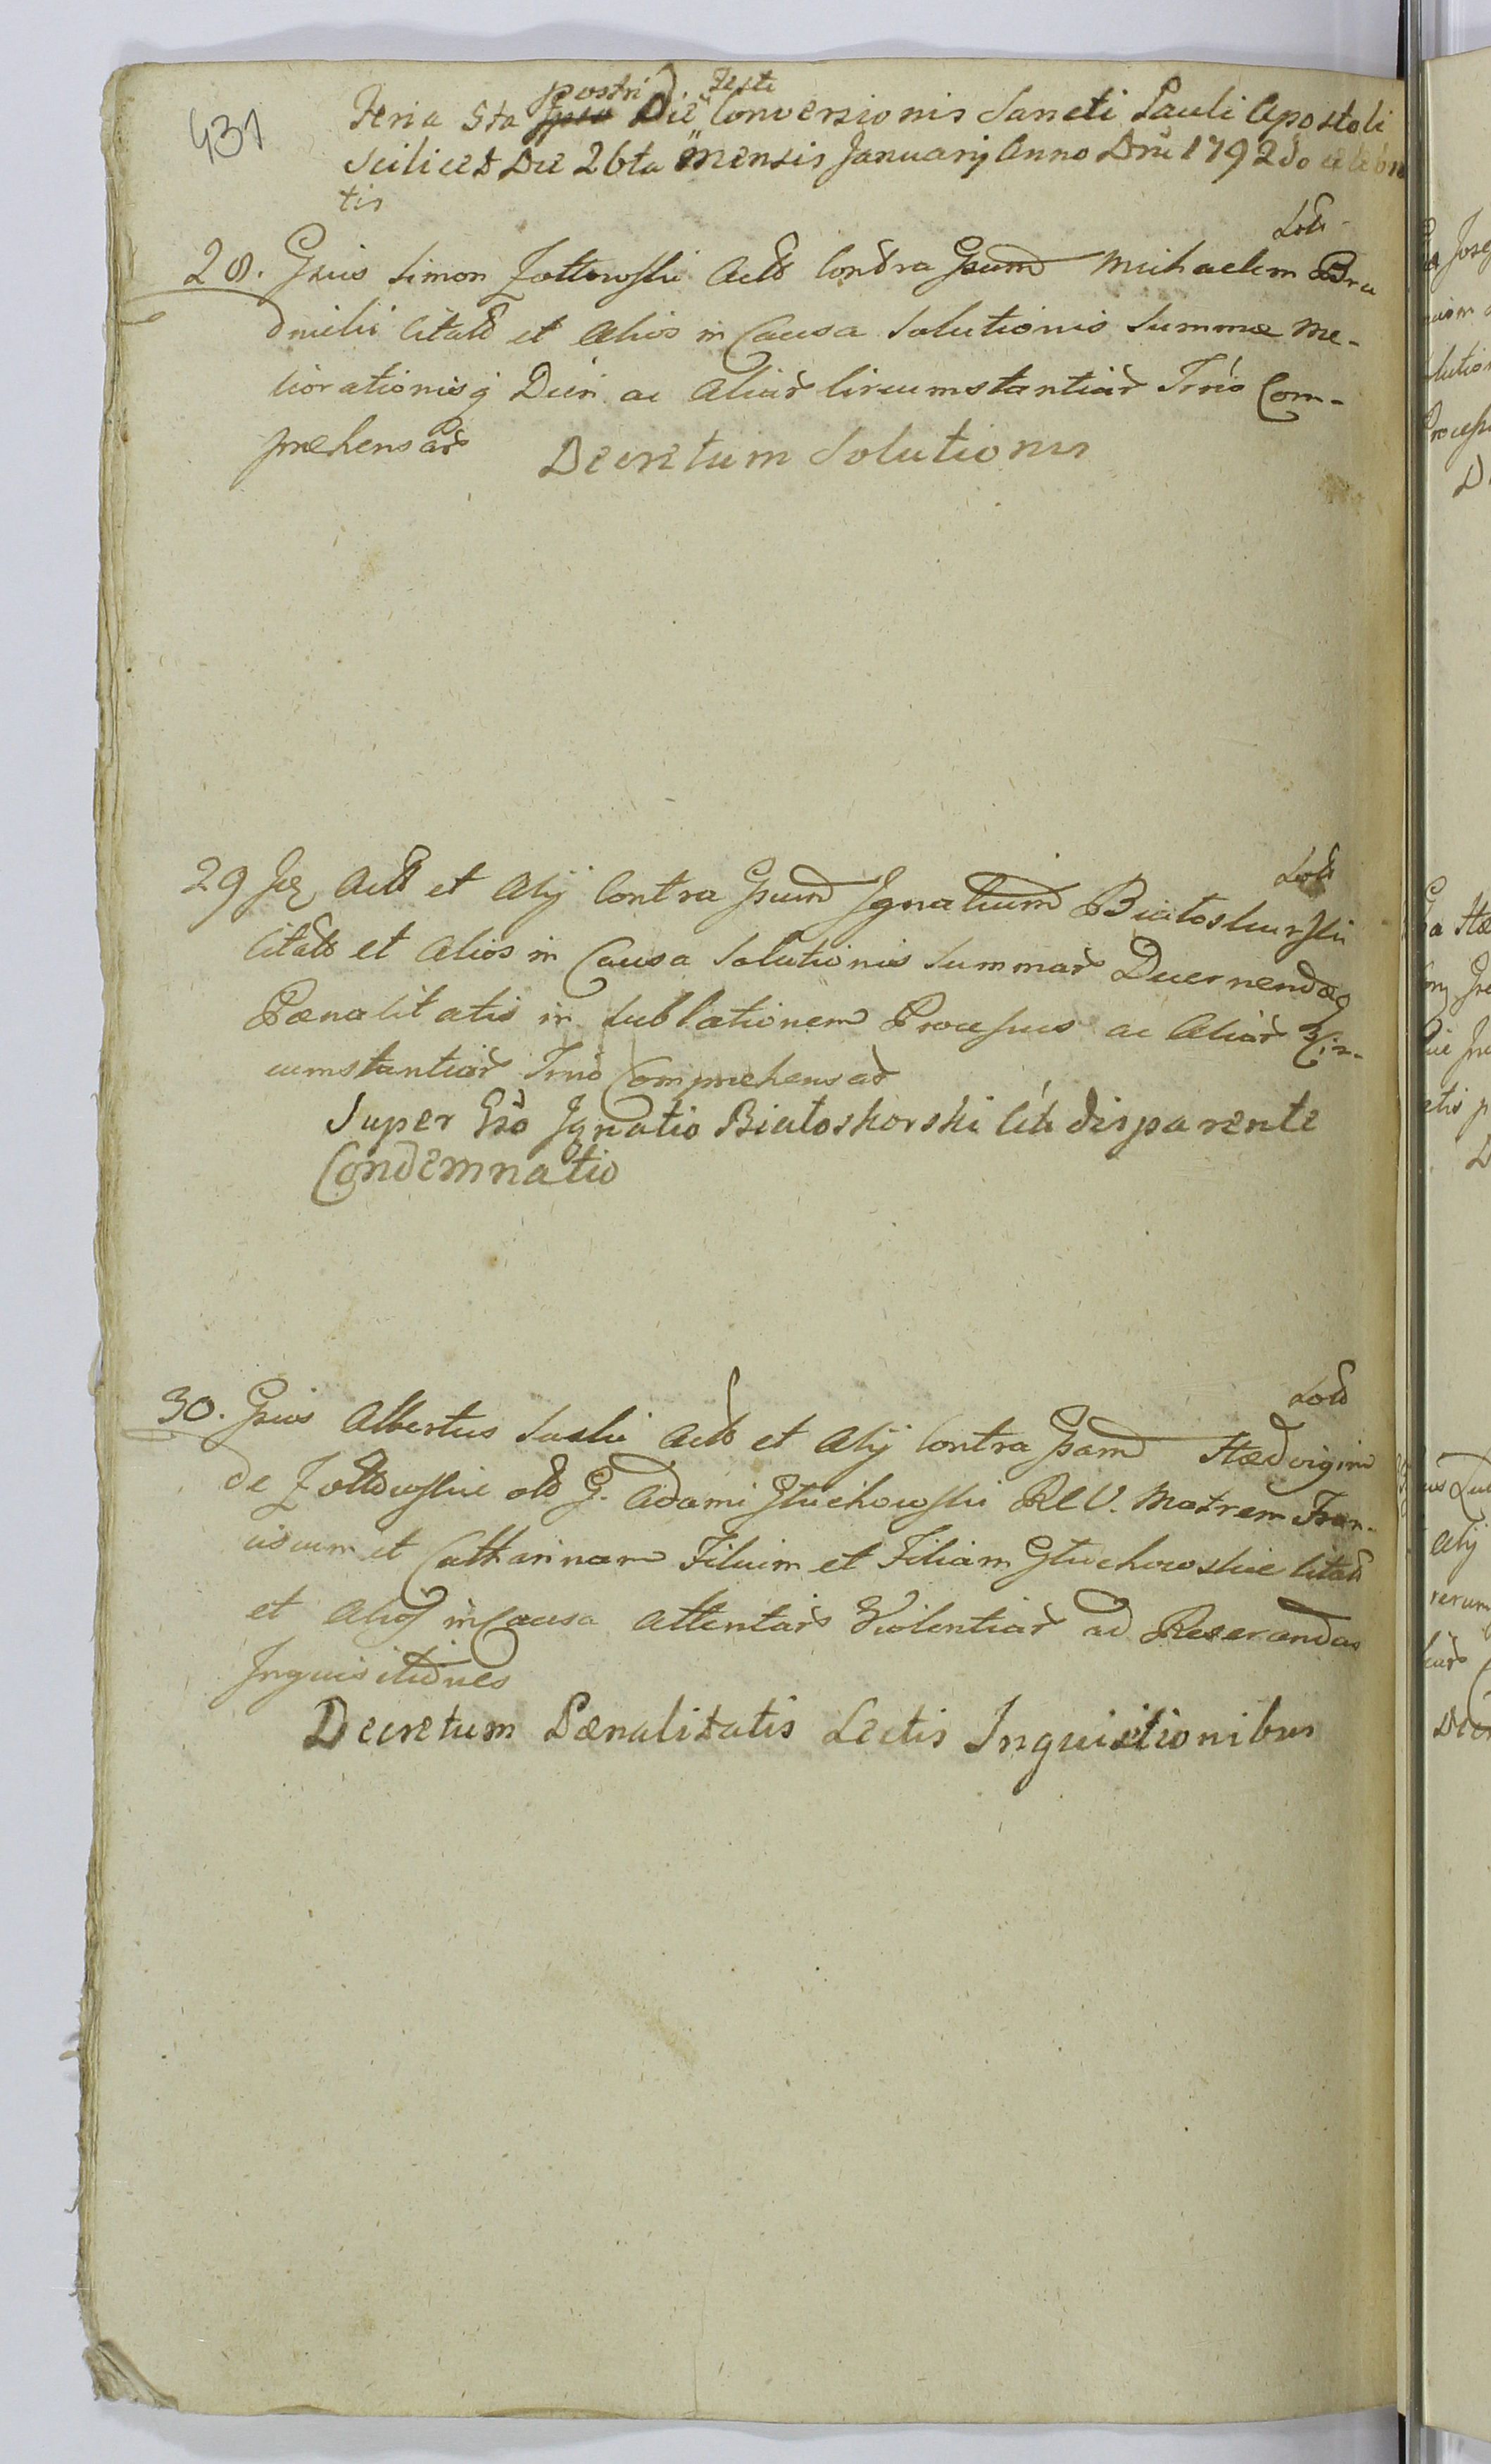 431
postri Festi
Feria 5ta Ipsa Die Conversionis Sancti Pauli Apostoli
Scilicet Die 26ta Mensis Januarij Anno Dni 1792do
tis
28. Gsus Simon Zołtowski Actb Contra Gsum Michaelem Bra
dnicki Citatb et Alios in Causa Solutionis Summæ Me-
liorationisq Dein ac Aliar Circumstantiar Trno Com-
præhensar Decretum Solutionis
29 Actb et Alij Contra Gsum Ignatium Białoskurski
Citatb et Alios in Causa Solutionis Summar Decernendæq
Pænalitatis in Sublationem Processus ac Aliar Cir-
cumstantiar Trno Compræhensar
Super Gso Ignatio Białoskorski Cito disparente
Condemnatio
30. Gsus Albertus Suski Actb et Alij Contra Gsam Hædvigim
de Zołtowskie olb G. Adami Głuchowski REV. Matrem Fran-
ciscum et Catharinam Filium et Filiam Głuchowskie Citatb
et Alios in Causa Attentar Violentiar ad Reserandas
Inquisitiones
Decretum Pænalitatis Lectis Inquisitionibus